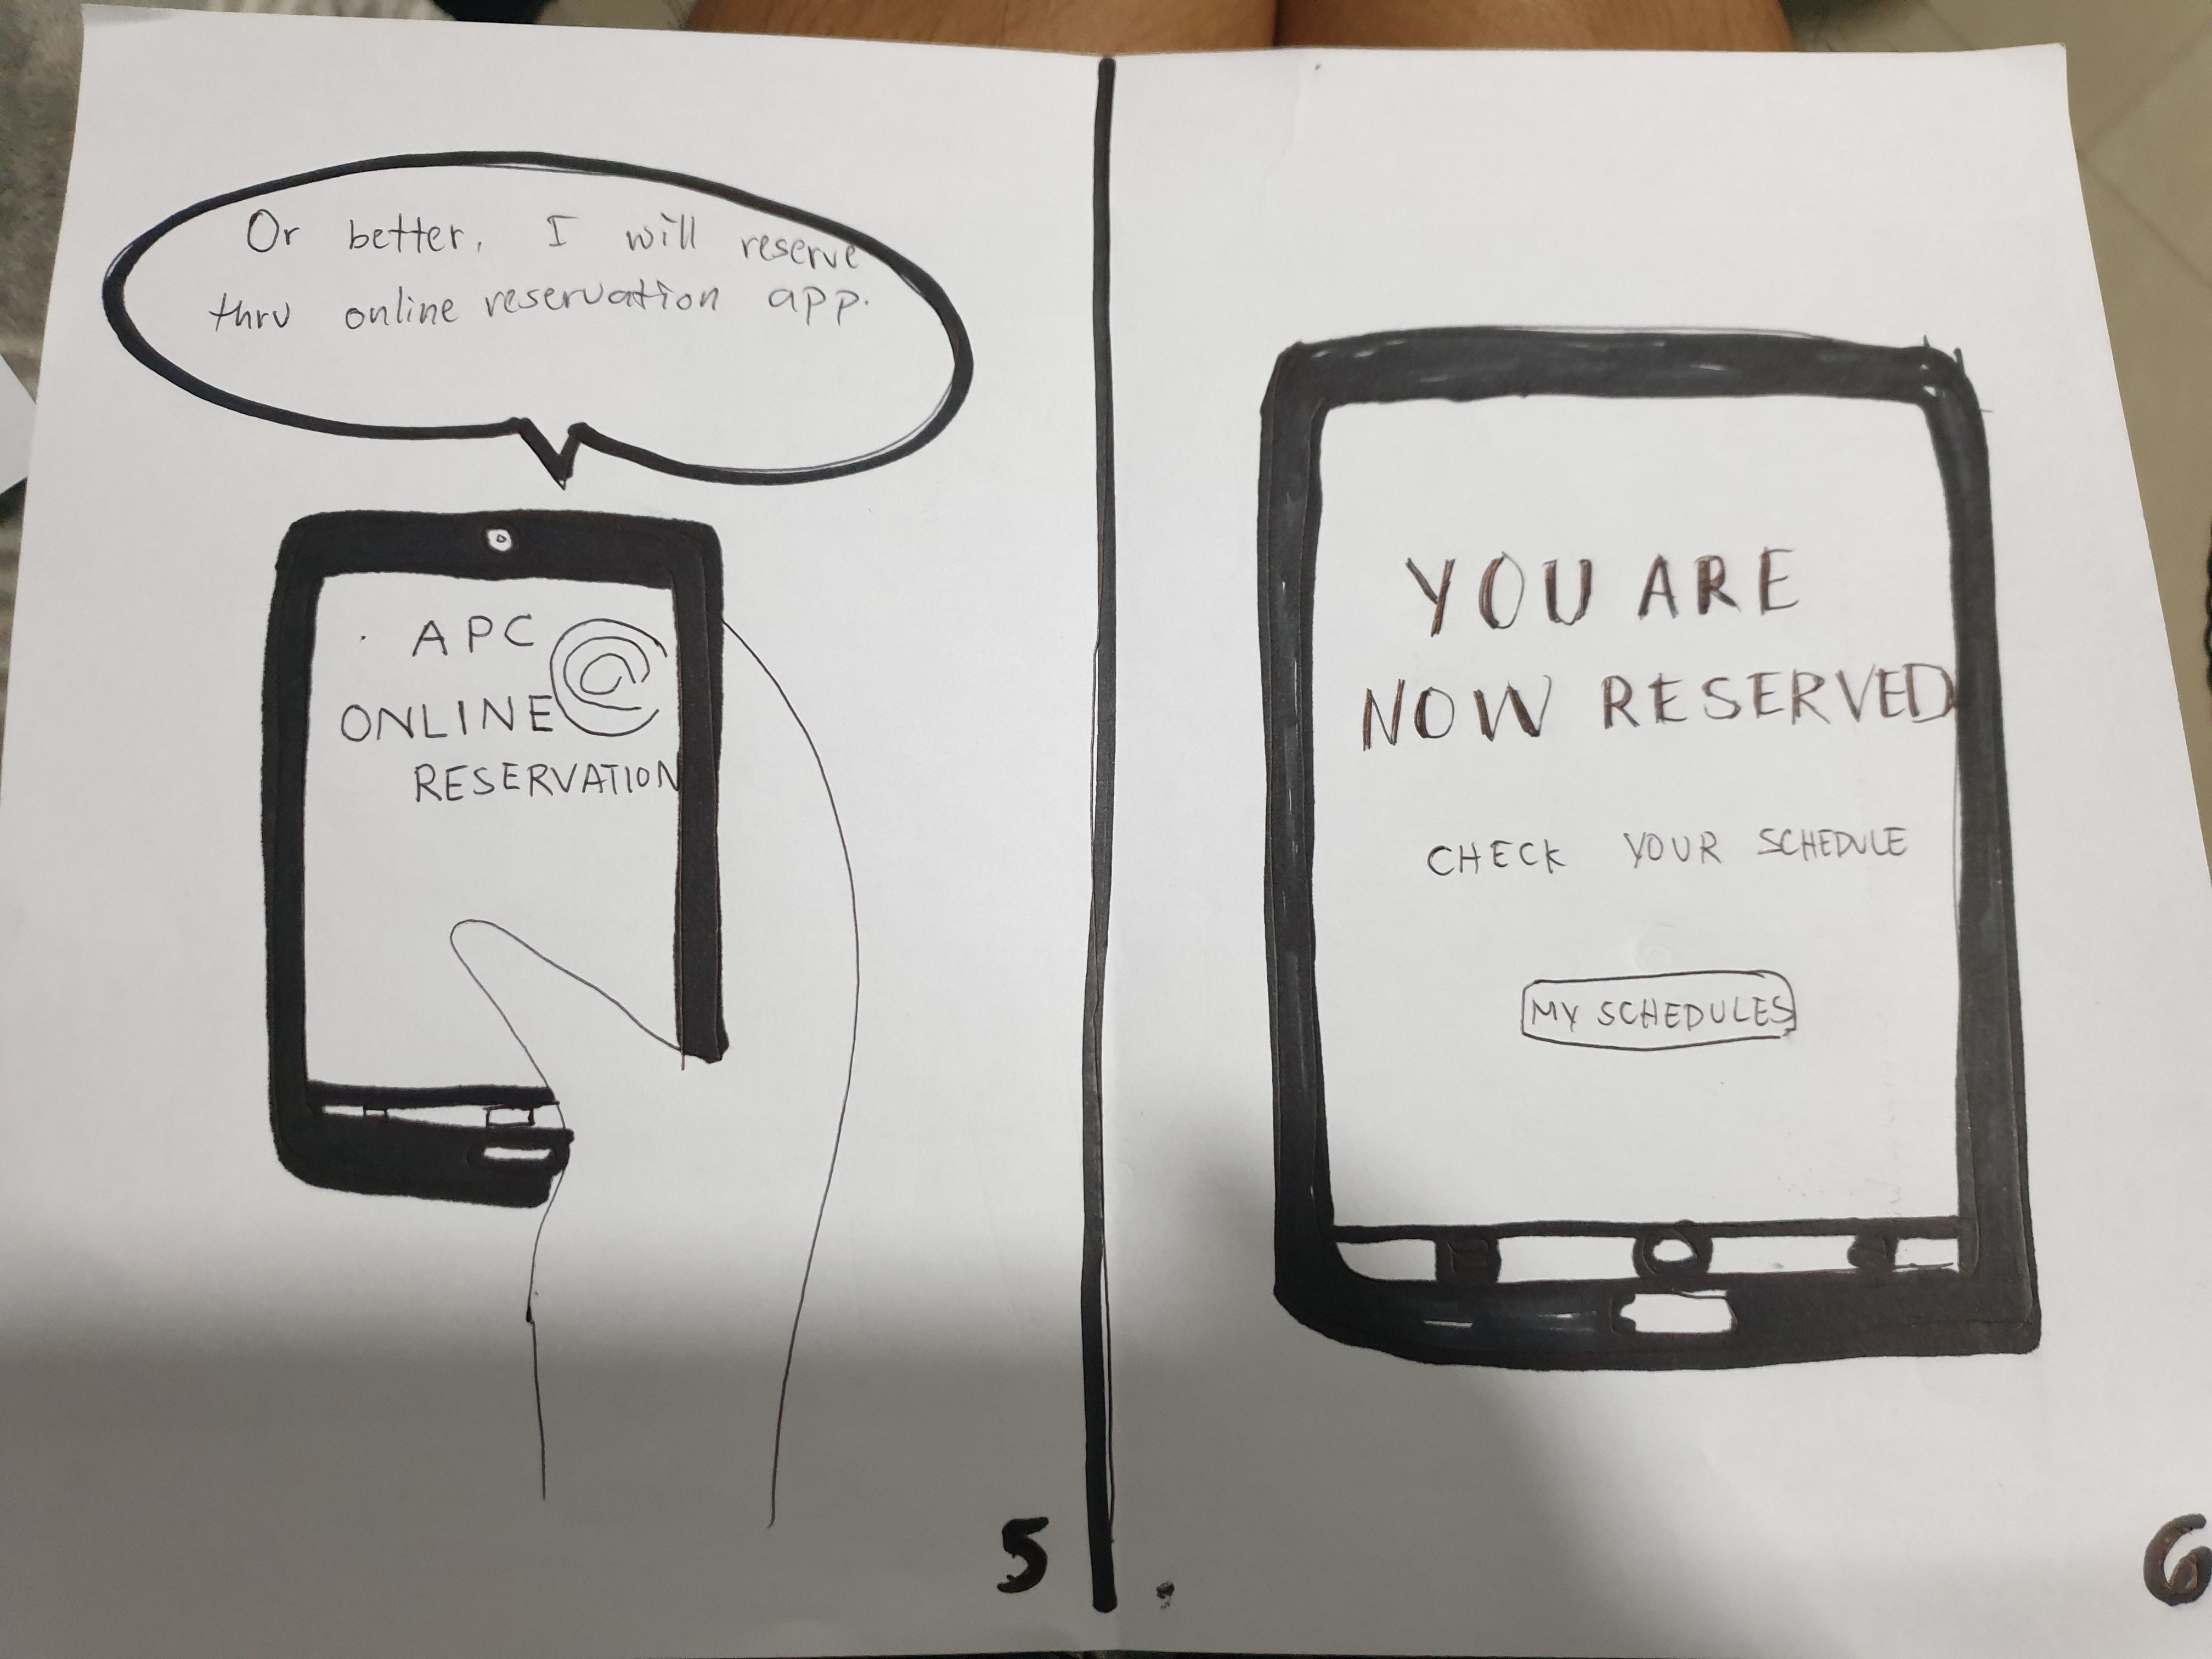 Or better, I will reserve
thru online reservation app.
APC
ONLINE @
RESERVATION
5
YOU ARE
NOW RESERVED
CHECK YOUR SCHEDULE
MY SCHEDULES
6